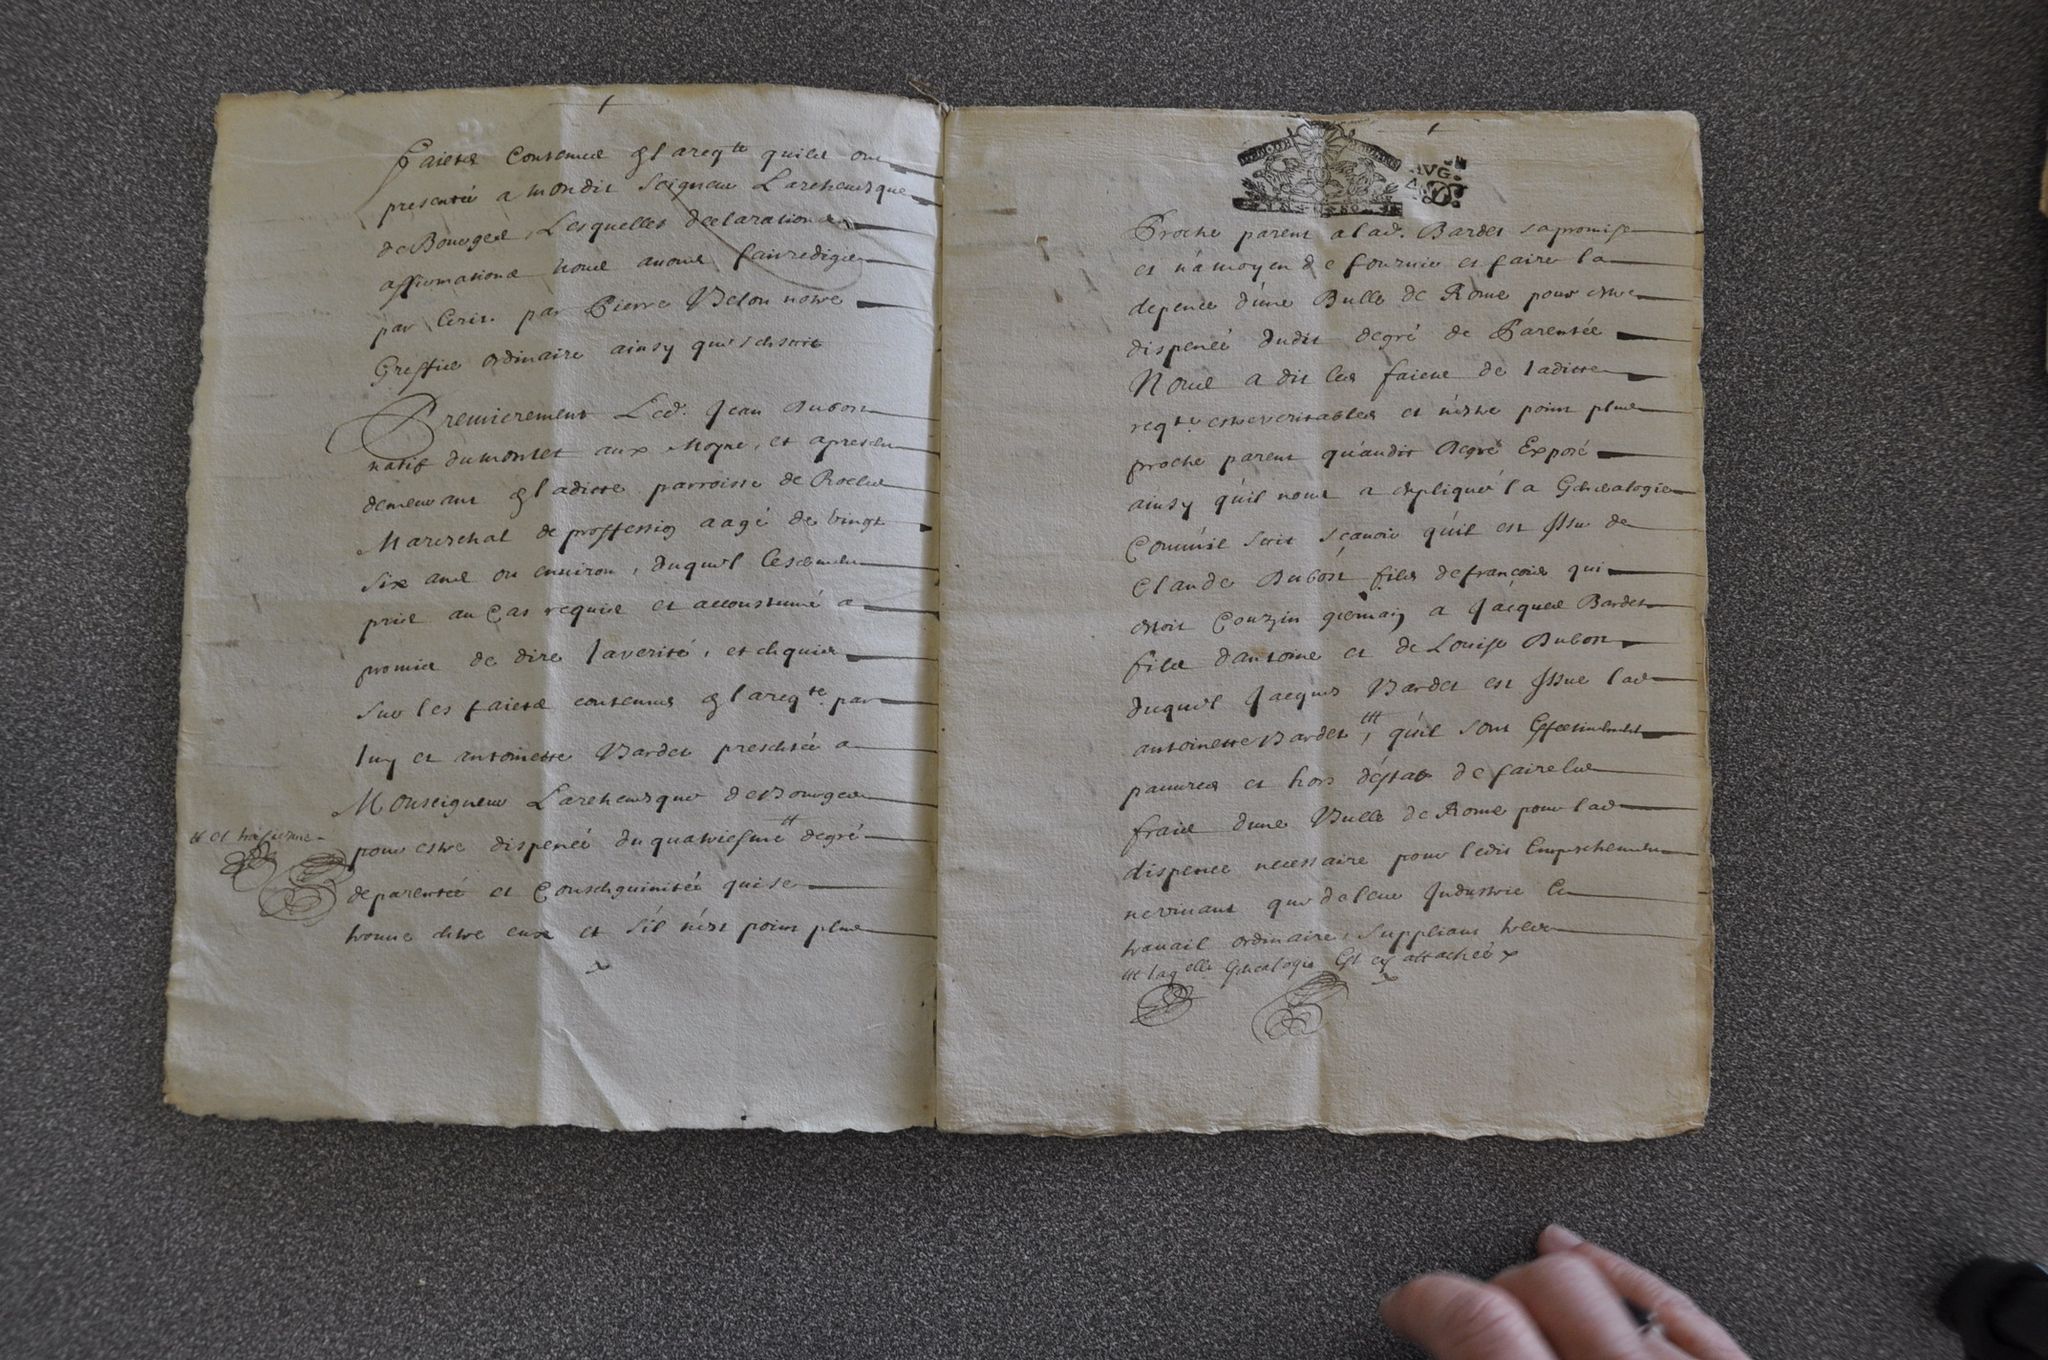 faictz contenue en lareqte quils ont
presentée a mondit Seigneur Larchevesque
de Bourges, Lesquelles declarations
affirmations nous avons fait rediger
par Ecrit par Pierre Belon nostre
Greffier ordinaire ainsy que s'ensuit
Premierement Led. Jean Dubost
natif dumontet aux Moyne, et apresent
demeurant en laditte parroisse de Rocles
Mareschal de proffession aagé de vingt
six ans ou environ, duquel le serment
pris au cas requis et accoustumé a
promis de dire laverité, et enquis
sur les faictz contenus en lareqte par
luy et antoinette Bardet presentée a
Monseigneur Larchevesque de Bourges
pour estre dispencé du quatriesme # degré
# et troisiesme
deparentée et Consenguinitée qui se
trouve entre eux et s'il n'est point plus
AVG.
Proche parent a lad. Bardet sa promise
et n'a moyen de fournir et faire la
depence d'une Bulle de Rome pour estre
dispencé dudit degré de Parentée
Nous a dit les faictz de laditte
reqte estre veritables et n'estre point plus
proche parent qu'audit degré Exposé
ainsy qu'il nous a expliqué la Genealogie
Comm'il s'ensuit sçavoir qu'il est Issu de
Claude Dubost fils de françois qui
estoit Couzin germain a Jacques Bardet
fils d'antoine et de Louise Dubost
duquel Jacques Bardet est Issue lad.
antoinette Bardet, ### qu'il sont Effectivement
pauvres et hors d'estat de faire les
frais d'une Bulle de Rome pour lad.
dispence necessaire pour ledit Empeschement
ne vivant que de leur Industrie et
travail ordinaire, Suppliant tres
### laqelle Genealogie Est cy attachée